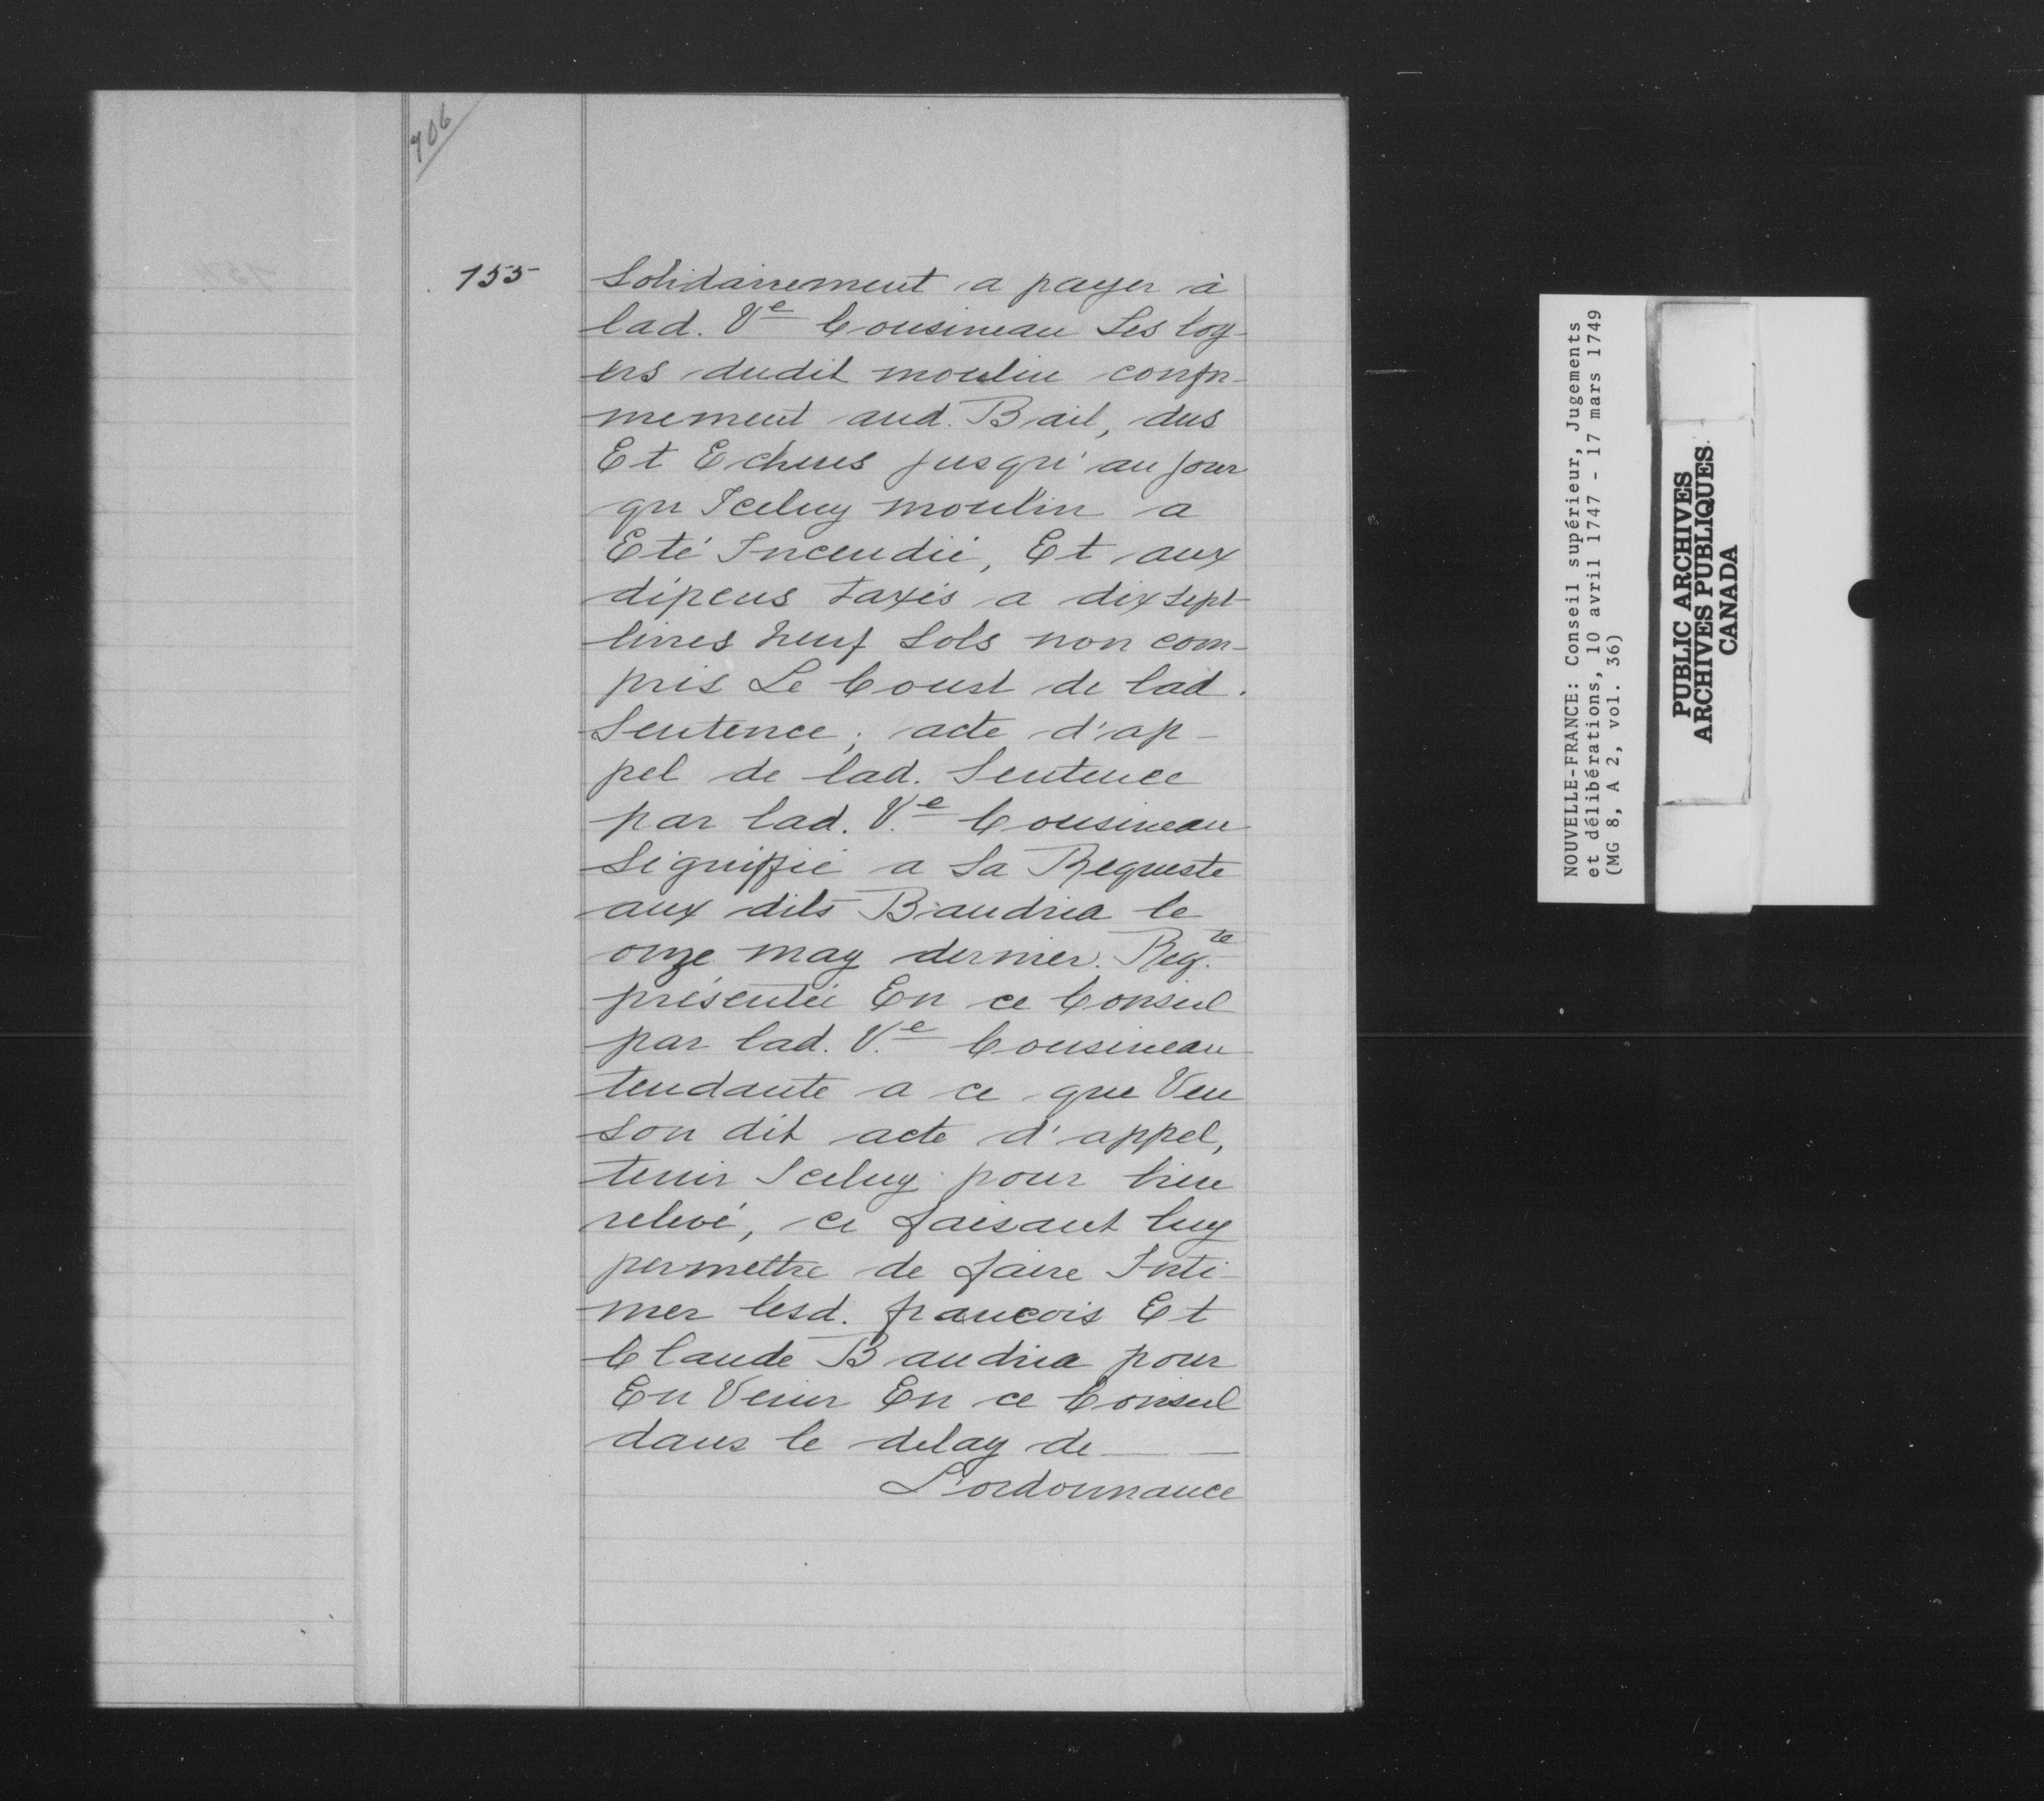 706
155
Solidairement a payer à
lad. Ve Cousineau Les loy-
ers dudit moulin confor-
mement aud. Bail, dus
Et Echeus jusqu'au jour
qu Iceluy moulin a
Eté Incendié, Et aux
dépens taxés a dix sept
livres neuf sols non com-
pris Le Coust de lad.
Sentence; acte d'ap-
pel de lad. Sentence
par lad. Ve Cousineau
Signiffié a Sa Requeste
aux dits Baudria le
onze may dernier. Reqte
présentée En ce Conseil
par lad. Ve Cousineau
tendante a ce que Veu
son dit acte d'appel,
tenir Iceluy pour bien
relevé, ce faisant luy
permettre de faire Inti-
mer lesd. francois Et
Claude Baudria pour
En Venir En ce Conseil
dans le delay de
L'ordonnance
NOUVELLE-FRANCE: Conseil supérieur, Jugements
et délibérations, 10 avril 1747 - 17 mars 1749
(MG 8, A 2, vol. 36)
PUBLIC ARCHIVES
ARCHIVES PUBLIQUES
CANADA